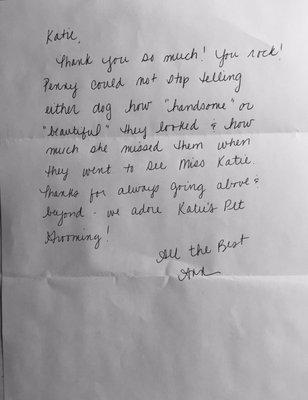 Katie,
Thank you so much! You rock!
Penny could not stop telling
either dog how "handsome" or
"beautiful" they looked & how
much she missed them when
they went to see Miss Katie.
Thanks for always going above &
beyond - we adore Katie's Pet
Grooming!
All the Best